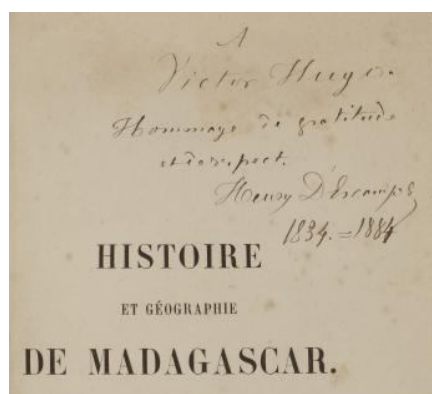 A
Victor Hugo.
Hommage de gratitude
et de respect.
Henry D'Escamps
1834.=1884
HISTOIRE
ET GÉOGRAPHIE
DE MADAGASCAR.